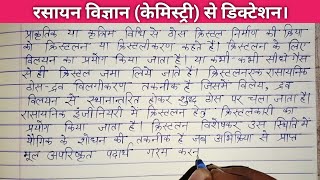 रसायन विज्ञान (केमिस्ट्री) से डिक्टेशन।
प्राकृतिक या कृत्रिम विधि से ठोस क्रिस्टल निर्माण की क्रिया
को क्रिस्टलन या क्रिस्टलीकरण कहते हैं। क्रिस्टलन के लिए
विलयन का प्रयोग किया जाता है। या कभी-कभी सीधे गैस
से ही क्रिस्टल जमा लिये जाते हैं। क्रिस्टलनएक रासायनिक
ठोस-द्रव विलगीकरण तकनीक है जिसमें विलेय, द्रव
विलयन से स्थानान्तरित होकर शुद्ध ठोस पर चला जाता है।
रासायनिक इंजीनियरी में क्रिस्टलन हेतु क्रिस्टलकारी का
प्रयोग किया जाता है। क्रिस्टलन विशेषकर उस स्थिति में
यौगिक के शोधन की तकनीक है जब अभिक्रिया से प्राप्त
मूल अपरिष्कृत पदार्थ गरम करन